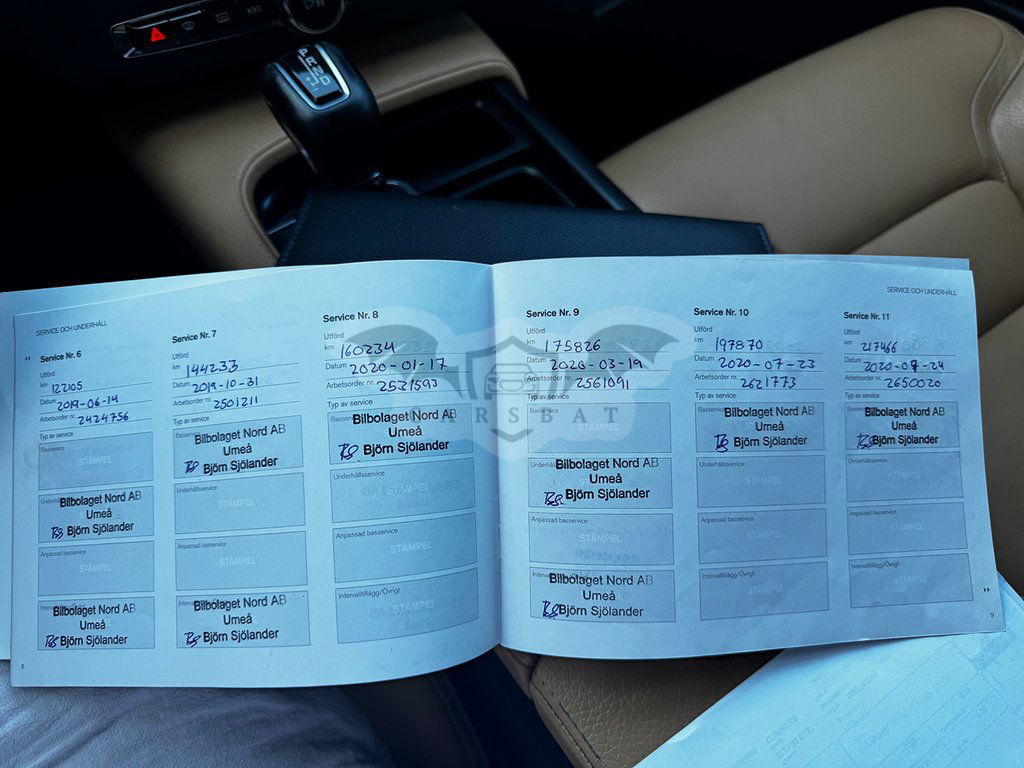 P R N D
+1-
SERVICE OCH UNDERHÅLL
Service Nr. 6
Utförd
km 122105
Datum 2019-06-14
Arbetsorder nr. 2424756
Typ av service
Basservice
STÄMPEL
Bilbolaget Nord AB
Umeå
Björn Sjölander
Anpassad basservice
STÄMPEL
Bilbolaget Nord AB
Umeå
Björn Sjölander
8
Service Nr. 7
Utförd
km 144233
Datum 2019-10-31
Arbetsorder nr. 2501211
Typ av service
Bilbolaget Nord AB
Umeå
Björn Sjölander
Underhållsservice
STÄMPEL
Anpassad basservice
STÄMPEL
Bilbolaget Nord AB
Umeå
Björn Sjölander
Service Nr. 8
Utförd
km 160234
Datum 2020-01-17
Arbetsorder nr. 2531593
Typ av service
Bilbolaget Nord AB
Umeå
Björn Sjölander
Underhållsservice
STÄMPEL
Anpassad basservice
STÄMPEL
Intervalltillägg/Övrigt
STÄMPEL
ARSBAT
Service Nr. 9
Utförd
km 175826
Datum 2020-03-19
Arbetsorder nr. 2561091
Typ av service
Basservice
STÄMPEL
Bilbolaget Nord AB
Umeå
Björn Sjölander
Anpassad basservice
STÄMPEL
Bilbolaget Nord AB
Umeå
Björn Sjölander
Service Nr. 10
Utförd
km 197870
Datum 2020-07-23
Arbetsorder nr. 2621773
Typ av service
Bilbolaget Nord AB
Umeå
Björn Sjölander
Underhållsservice
STÄMPEL
Anpassad basservice
STÄMPEL
Intervalltillägg/Övrigt
STÄMPEL
SERVICE OCH UNDERHÅLL
Service Nr. 11
Utförd
km 217466
Datum
Arbetsorder nr. 2650020
Typ av service
Bilbolaget Nord AB
Umeå
Björn Sjölander
Underhållsservice
STÄMPEL
Anpassad basservice
STÄMPEL
Intervalltillägg/Övrigt
STÄMPEL
9